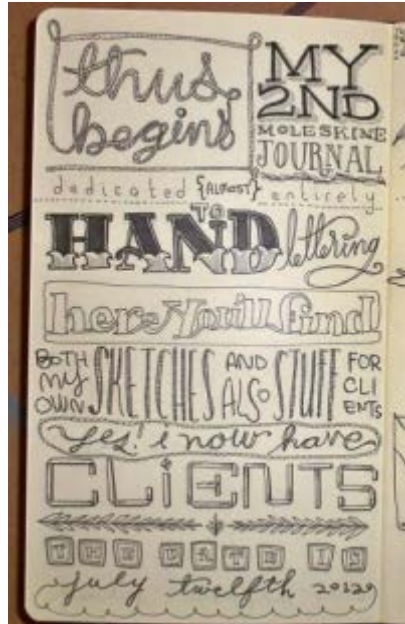 thus begins
MY 2ND
MOLESKINE
JOURNAL
dedicated {ALMOST} entirely
TO
HAND lettering
here You'll find
BOTH my OWN SKETCHES AND ALSO STUFF FOR CLIENTS
Yes! i now have
CLiENTS
THE DATE IS
july twelfth 2012